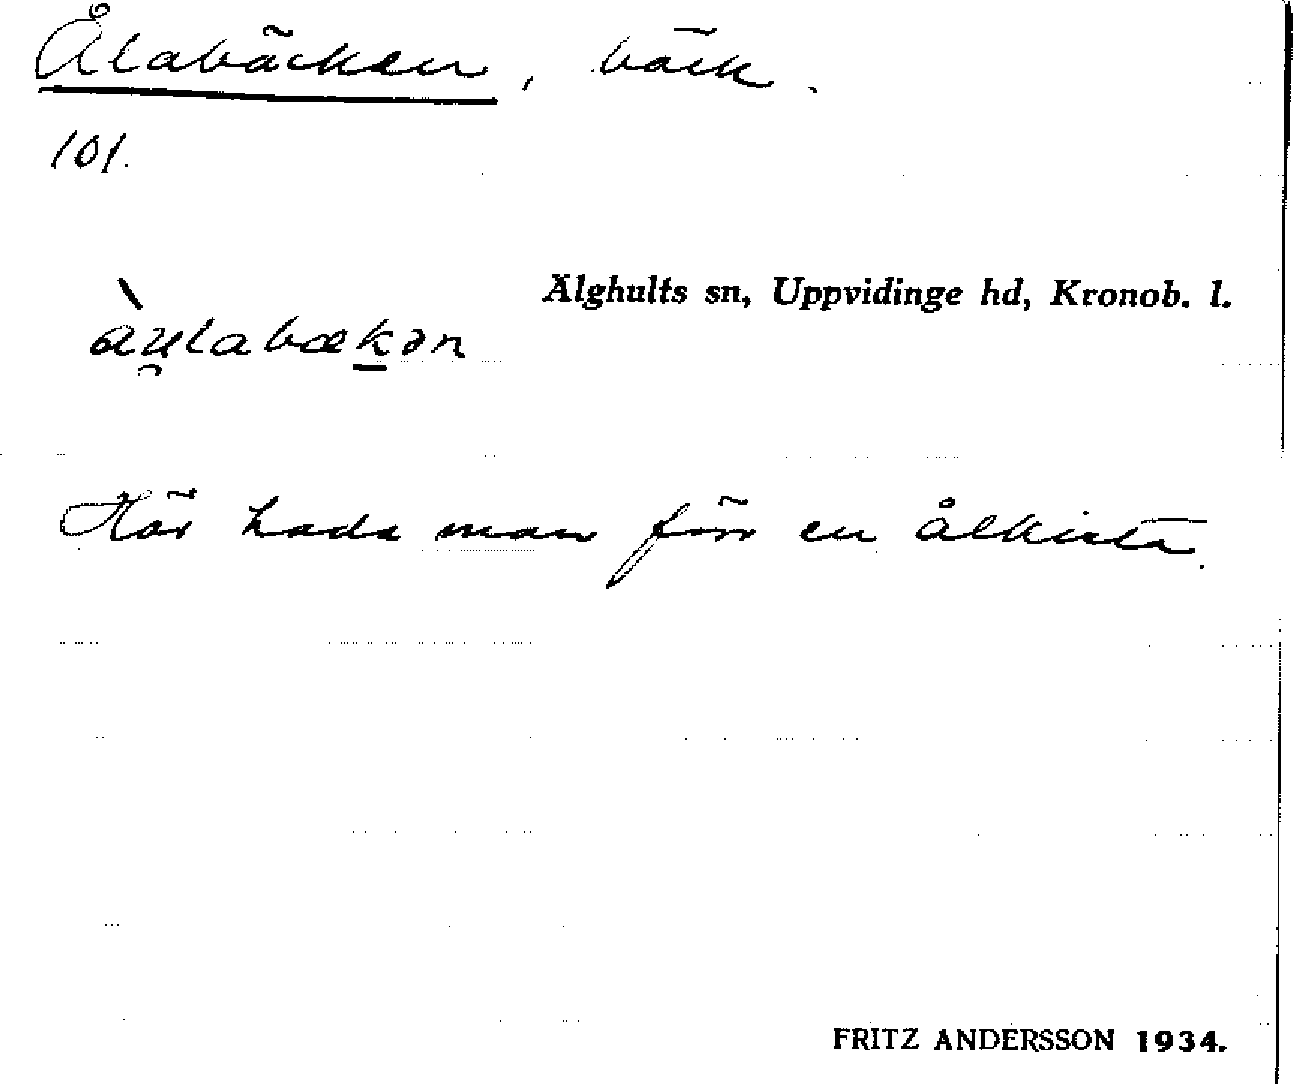 Ålabäcken, bäck.
101.
Älghults sn, Uppvidinge hd, Kronob. l.
àu̯labæk̲ən
Här hade man förr en ålkista.
FRITZ ANDERSSON 1934.